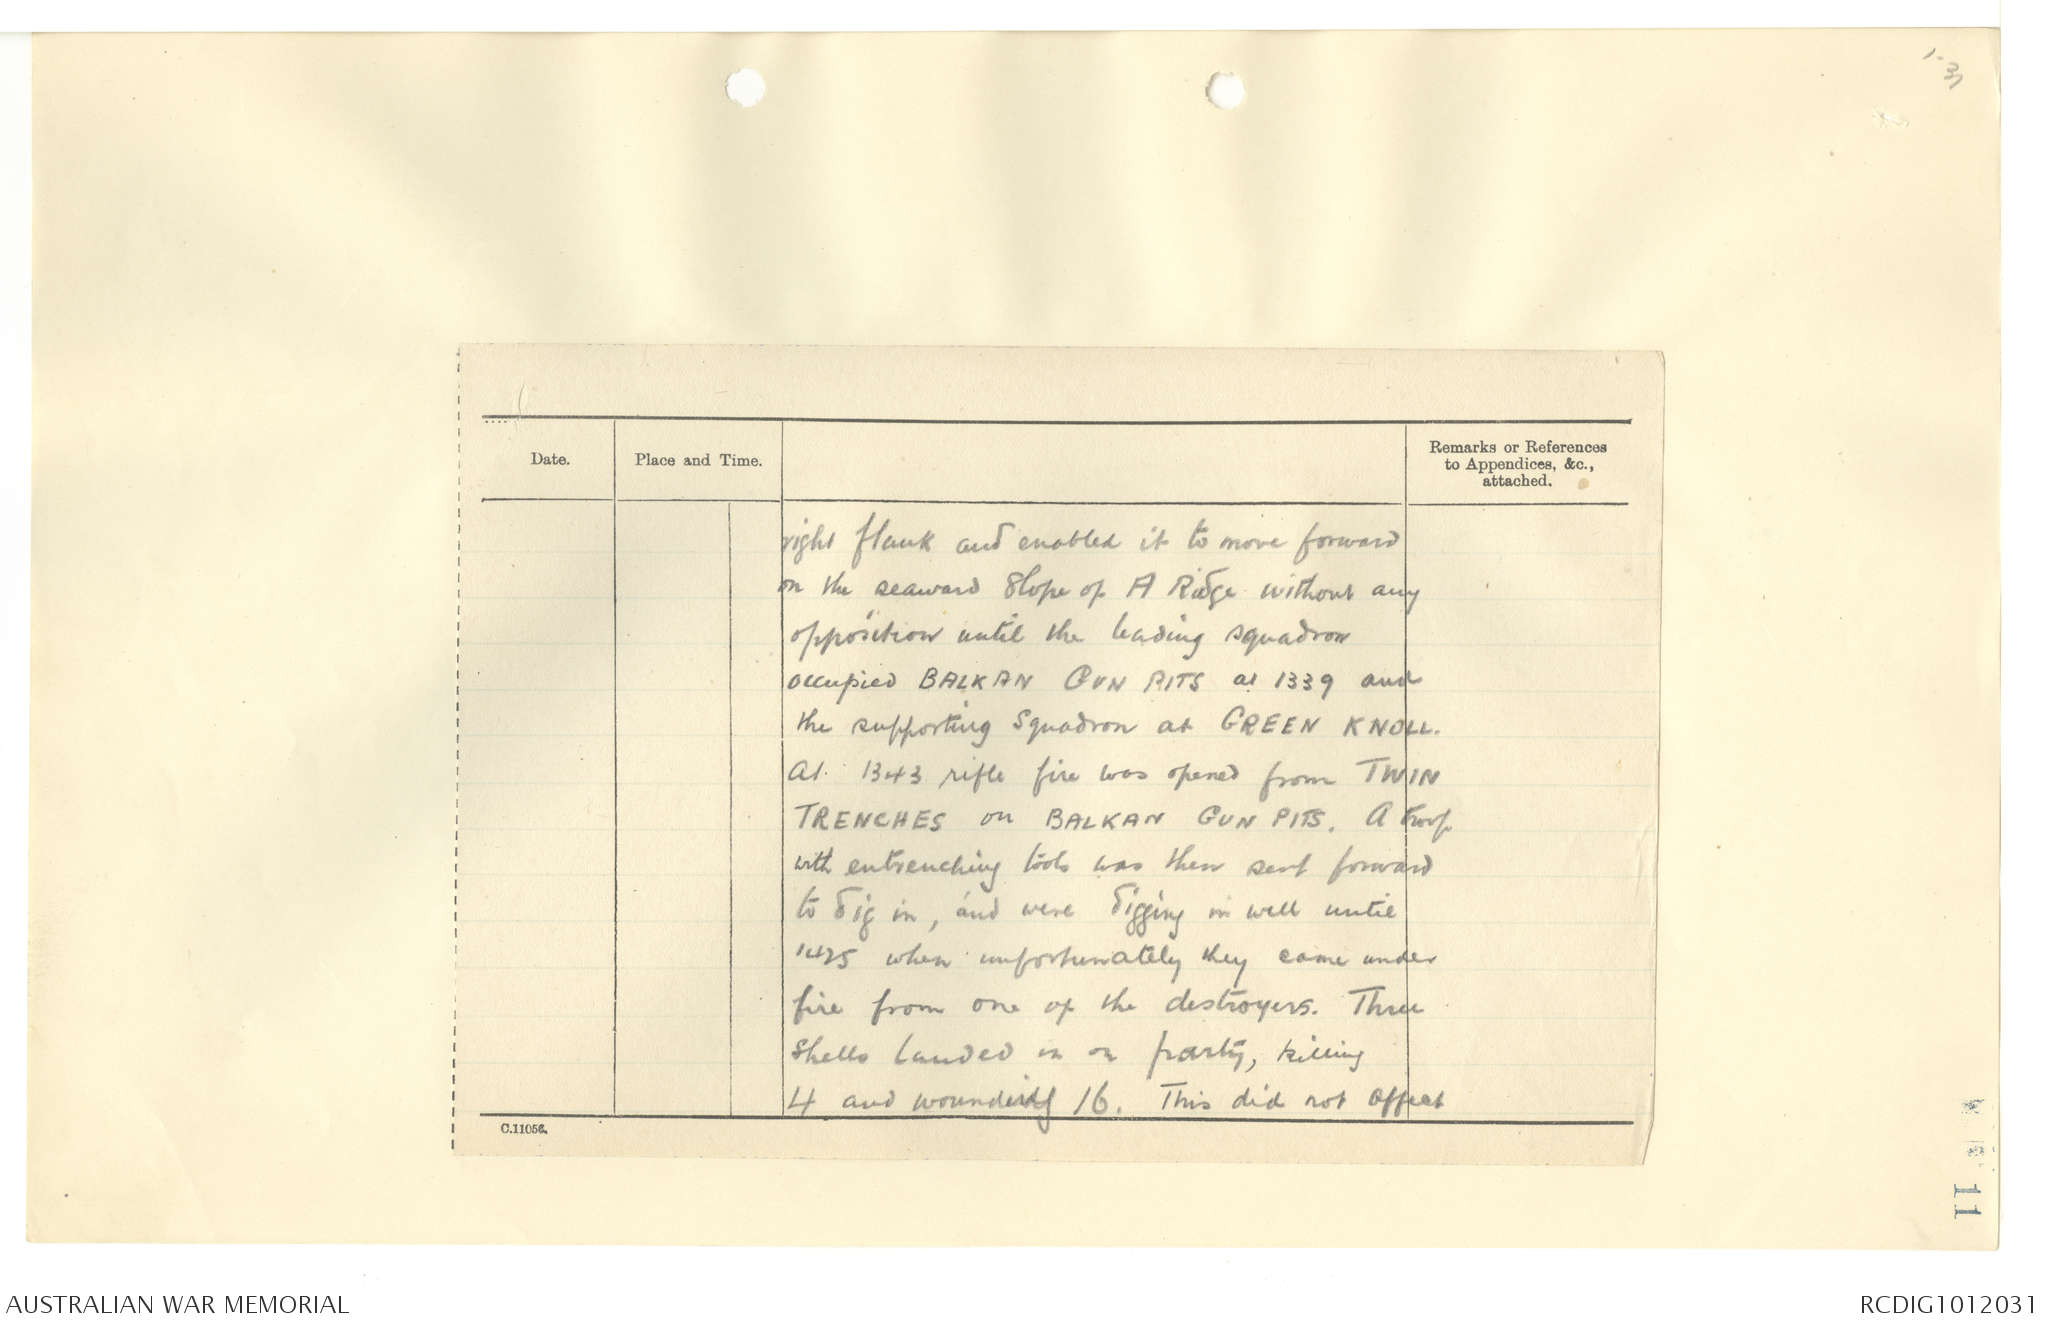 1-31
Date.
Place and Time.
Remarks or References
to Appendices, &c.,
attached.
right flank and enabled it to move forward
on the seaward slope of A Ridge without any
opposition until the leading squadron
occupied BALKAN GUN PITS at 1339 and
the supporting Squadron at GREEN KNOLL.
At 1343 rifle fire was opened from TWIN
TRENCHES on BALKAN GUN PITS. A troop
with entrenching tools was then sent forward
to dig in, and were digging in well until
1425 when unfortunately they came under
fire from one of the destroyers. Three
shells landed in on party, killing
4 and wounding 16. This did not affect
C.11056.
11
AUSTRALIAN WAR MEMORIAL
RCDIG1012031